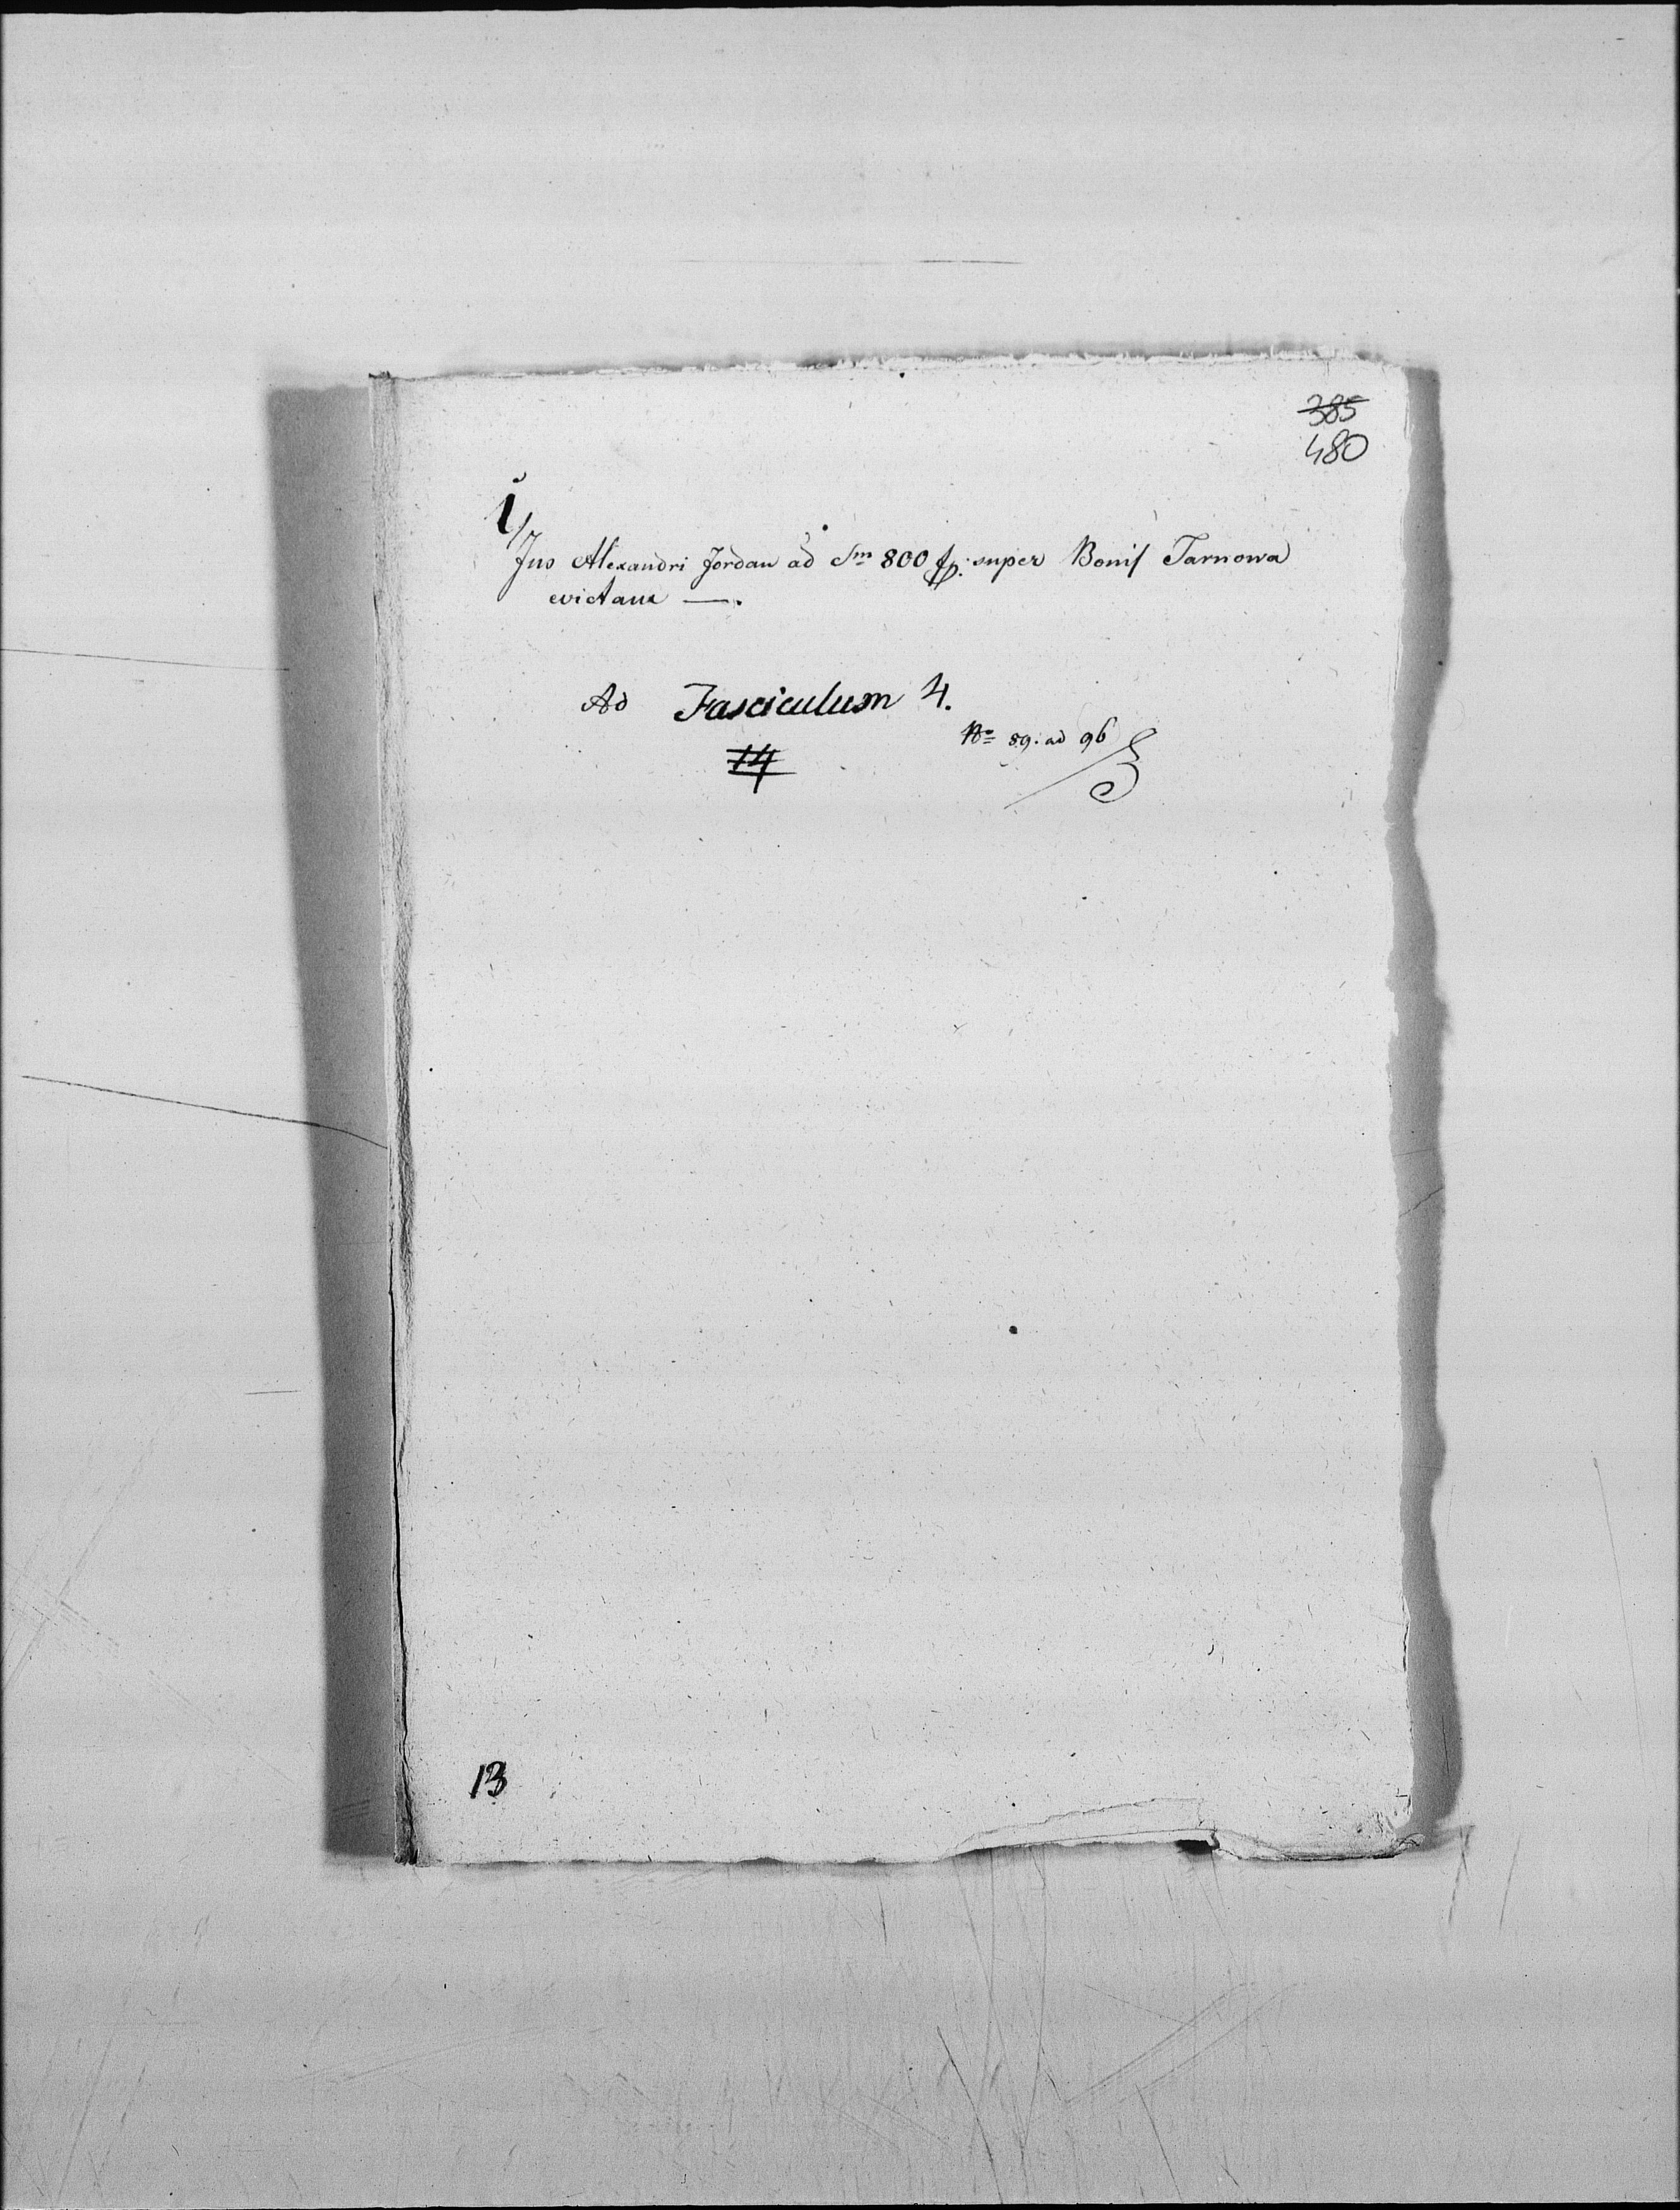 385
480
1/
Jus Alexandri Jordan ad Sm 800 fp. super Bonis Tarnowa
evictam —.
Ad Fasciculum 4.
14
No 89. ad 96
13